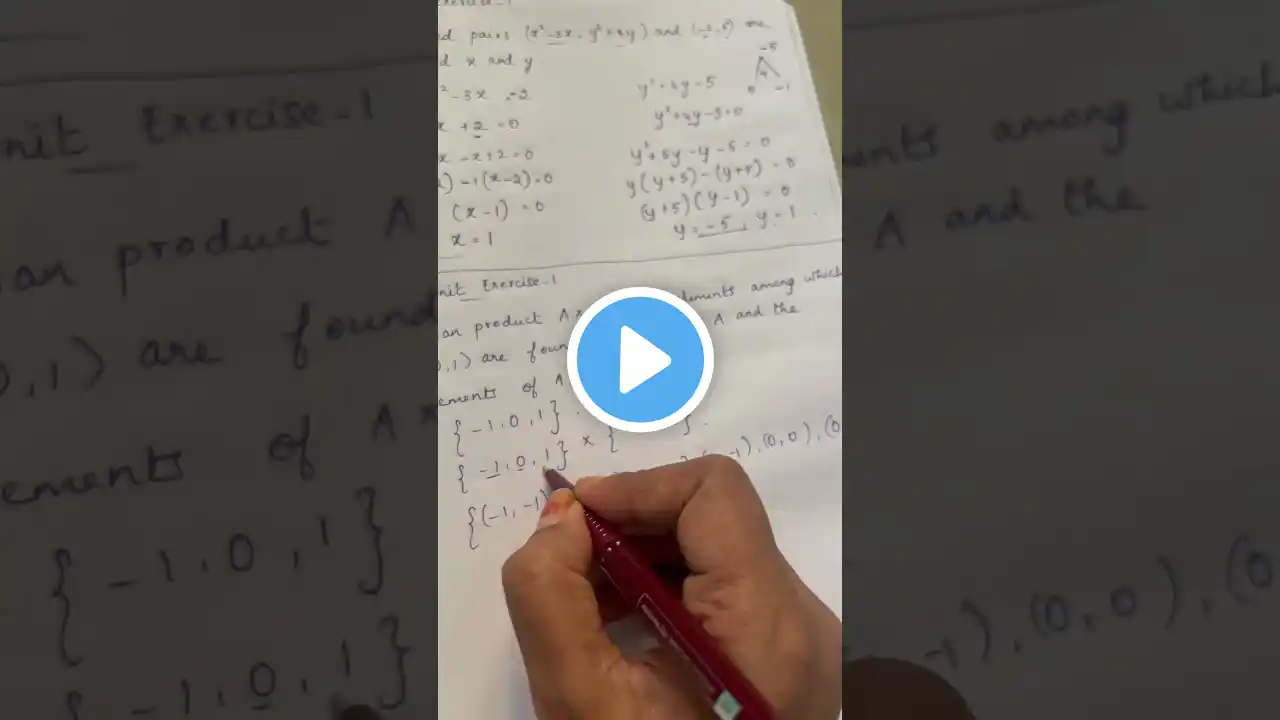 d pairs (x²-3x, y²+4y) and (-2,5) are
d x and y
² -3x = -2
y²+4y=5
-5
x + 2 = 0
y²+4y-5=0
x - x+2=0
y²+5y-y-5=0
) -1(x-2)=0
y(y+5)-(y+5) = 0
(x-1) = 0
(y+5)(y-1) = 0
x = 1
y = -5, y = 1.
nit Exercise-1
an product A ements among which
0,1) are foun A and the
ements of A
{-1, 0, 1}.
{-1, 0, 1} × { }.
{(-1, -1) -1), (0,0), (0